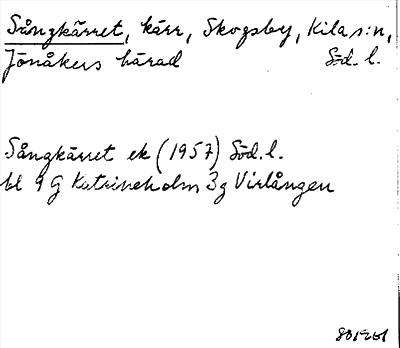 Sångkärret, kärr, Skogsby, Kila s:n,
Jönåkers härad Söd. l.
Sångkärret ek (1957) Söd. l.
bl 9 G Katrineholm 3 g Virlången